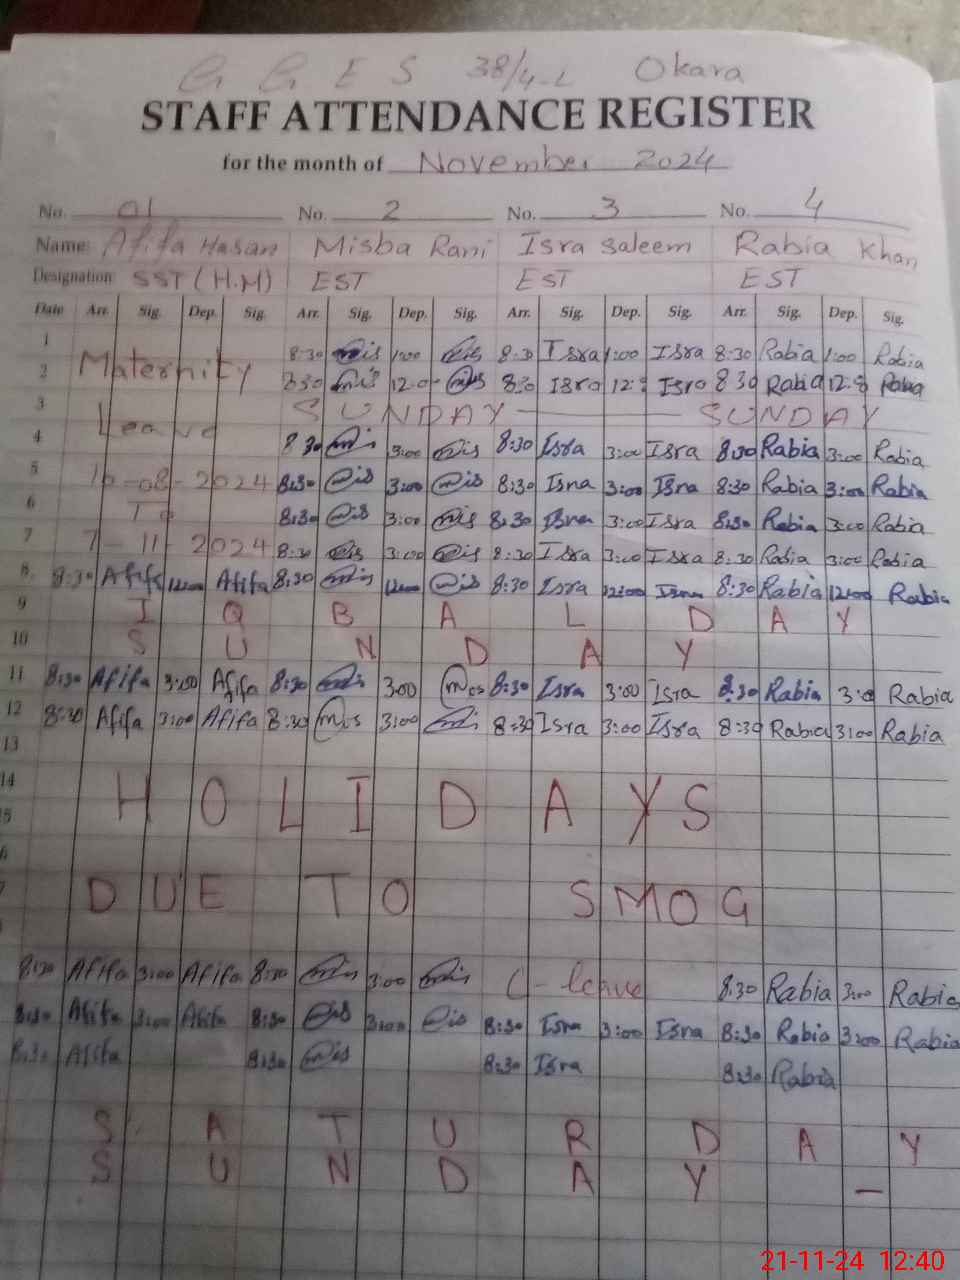 G G E S 38/4-L Okara
STAFF ATTENDANCE REGISTER
for the month of November 2024
No. 01 No. 2 No. 3 No. 4
Name: Afifa Hasan Misba Rani Isra Saleem Rabia Khan
Designation SST (H.M) EST EST EST
Date Arr. Sig. Dep. Sig. Arr. Sig. Dep. Sig. Arr. Sig. Dep. Sig. Arr. Sig. Dep. Sig.
1 8:30 mis 1:00 mis 8:30 Isra 1:00 Isra 8:30 Rabia 1:00 Rabia
Maternity
2 8:30 mis mis 8:30 Isra Isra 8:30 Rabia Rabia
3 SUNDAY SUNDAY
Leave
4 8:30 mis 3:00 mis 8:30 Isra 3:00 Isra 8:30 Rabia 3:00 Rabia
5 -08-2024 8:30 mis 3:00 mis 8:30 Isra 3:00 Isra 8:30 Rabia 3:00 Rabia
6 To 8:30 mis 3:00 mis 8:30 Isra 3:00 Isra 8:30 Rabia 3:00 Rabia
7 7-11-2024 8:30 mis 3:00 mis 8:30 Isra 3:00 Isra 8:30 Rabia 3:00 Rabia
8 8:30 Afifa 12:00 Afifa 8:30 mis 12:00 mis 8:30 Isra 12:00 Isra 8:30 Rabia 12:00 Rabia
9 I Q B A L D A Y
10 S U N D A Y
11 8:30 Afifa 3:00 Afifa 8:30 mis 3:00 mis 8:30 Isra 3:00 Isra 8:30 Rabia 3:0 Rabia
12 8:30 Afifa 3:00 Afifa 8:30 mis 3:00 mis 8:30 Isra 3:00 Isra 8:30 Rabia 3:00 Rabia
13
14 H O L I D A Y S
5
6
7 D U E T O S M O G
8:30 Afifa 3:00 Afifa 8:30 mis 3:00 mis C-leave 8:30 Rabia 3:00 Rabia
8:30 Afifa 3:00 Afifa 8:30 mis 3:00 mis 8:30 Isra 3:00 Isra 8:30 Rabia 3:00 Rabia
8:30 Afifa 8:30 mis 8:30 Isra 8:30 Rabia
S A T U R D A Y
S U N D A Y –
21-11-24 12:40